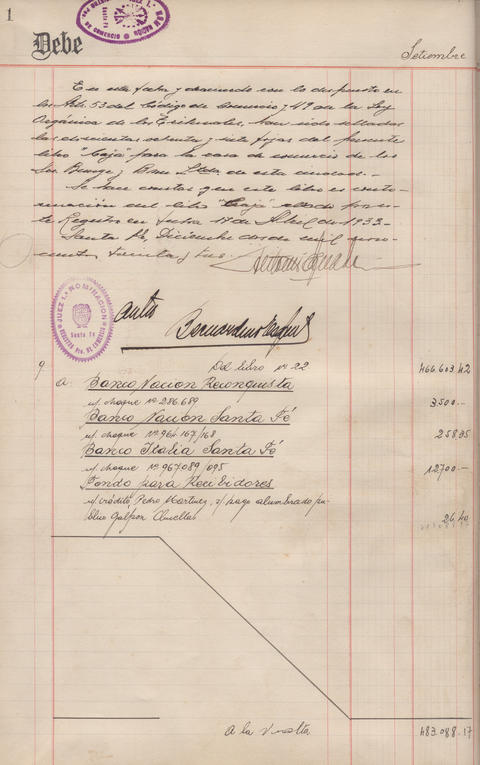 1
Debe
Setiembre
En esta fecha y de acuerdo con lo dispuesto en
los Arts. 53 del Código de Comercio y 49 de la Ley
Orgánica de los Tribunales, han sido selladas
las doscientas ochenta y siete fojas del presente
libro "Caja" para la casa de comercio de los
Sres Bunge y Born Ltda. de esta ciudad.
Se hace constar que este libro es conti-
nuación del libro "Caja"
Registro en fecha 17 de Abril de 1933.
Santa Fé, Diciembre dos de mil nove-
cientos treinta y tres.
JUEZ 1.ª NOMINACION
Santa Fe
REGISTRO PCO. DE COMERCIO
Ante
9
Del libro nº 22 466.603.42
a Banco Nacion Reconquista
n/ cheque nº 286.689 3.500.-
Banco Nación Santa Fé
n/ cheque nº 964.167/168 258.95
Banco Italia Santa Fé
n/ cheque nº 967.089/095 12.700.-
Fondo para Recibidores
s/ crédito, Pedro Martinez, s/ pago alumbrado pú-
blico Galpon Ovellas 26.40
A la Vuelta 483.088.17